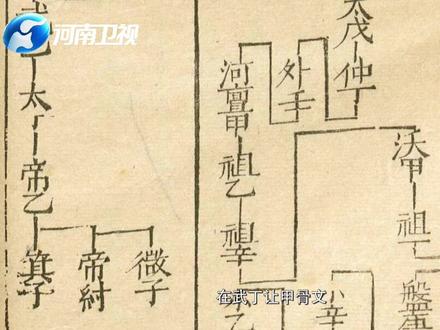 河南卫视
太戊
仲丁
外壬
河亶甲
祖乙
祖辛
沃甲
祖丁
太丁
帝乙
微子
帝紂
箕子
在武丁让甲骨文